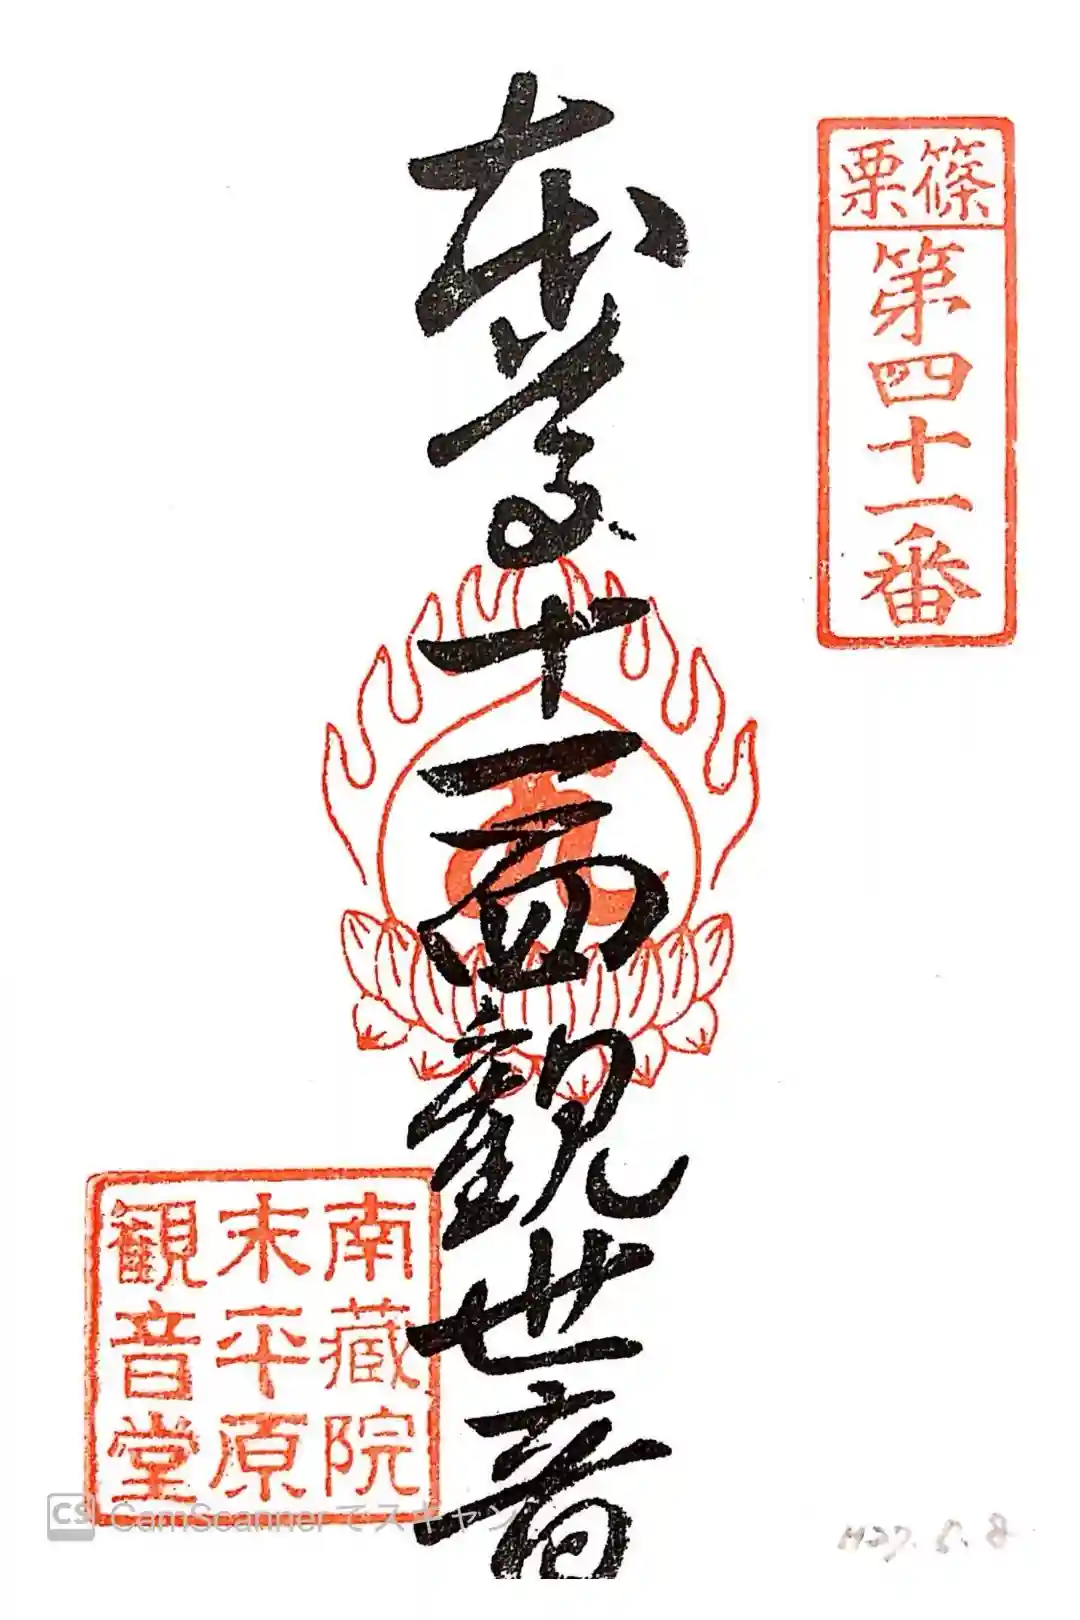 篠栗
第四十一番
本尊十一面観世音
南蔵院
末平原
観音堂
CS CamScannerでスキャン
H27.5.8